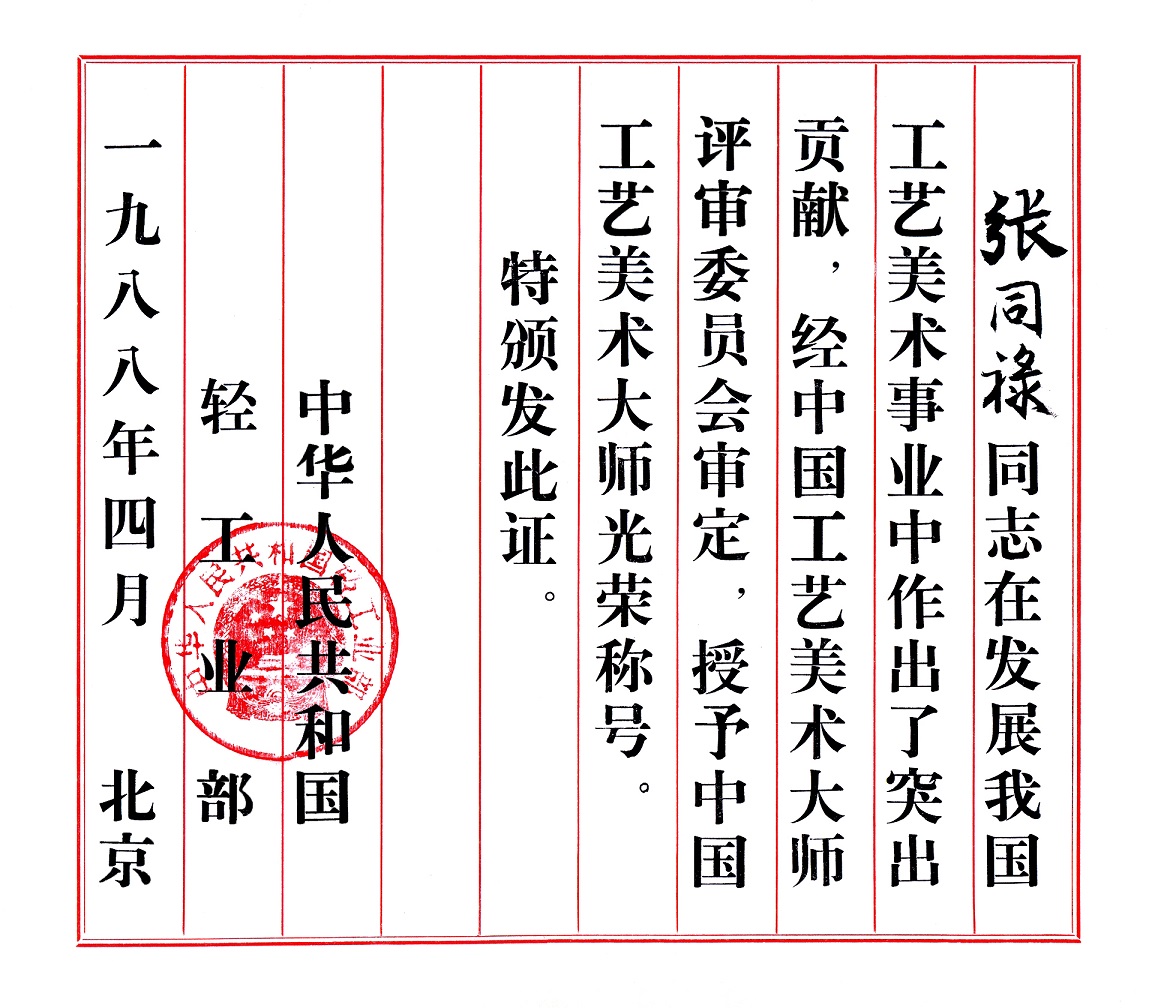 张同禄同志在发展我国
工艺美术事业中作出了突出
贡献，经中国工艺美术大师
评审委员会审定，授予中国
工艺美术大师光荣称号。
特颁发此证。
中华人民共和国
轻工业部
一九八八年四月 北京
中华人民共和国轻工业部